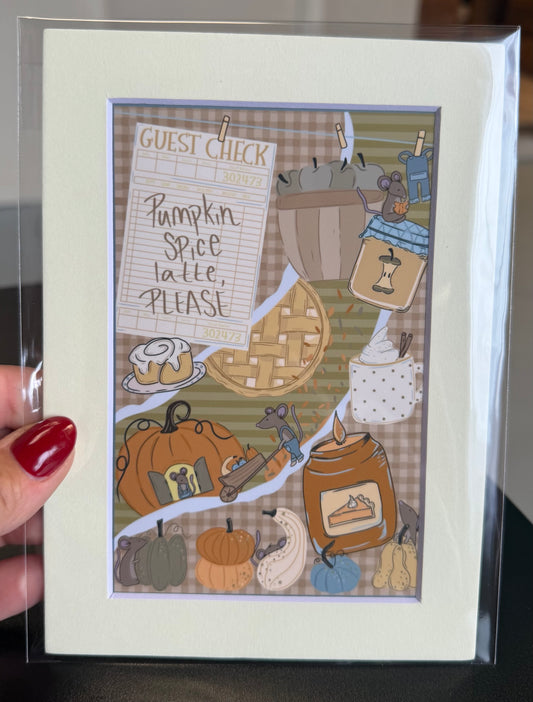 GUEST CHECK
302473
Pumpkin
Spice
latte,
PLEASE
302473